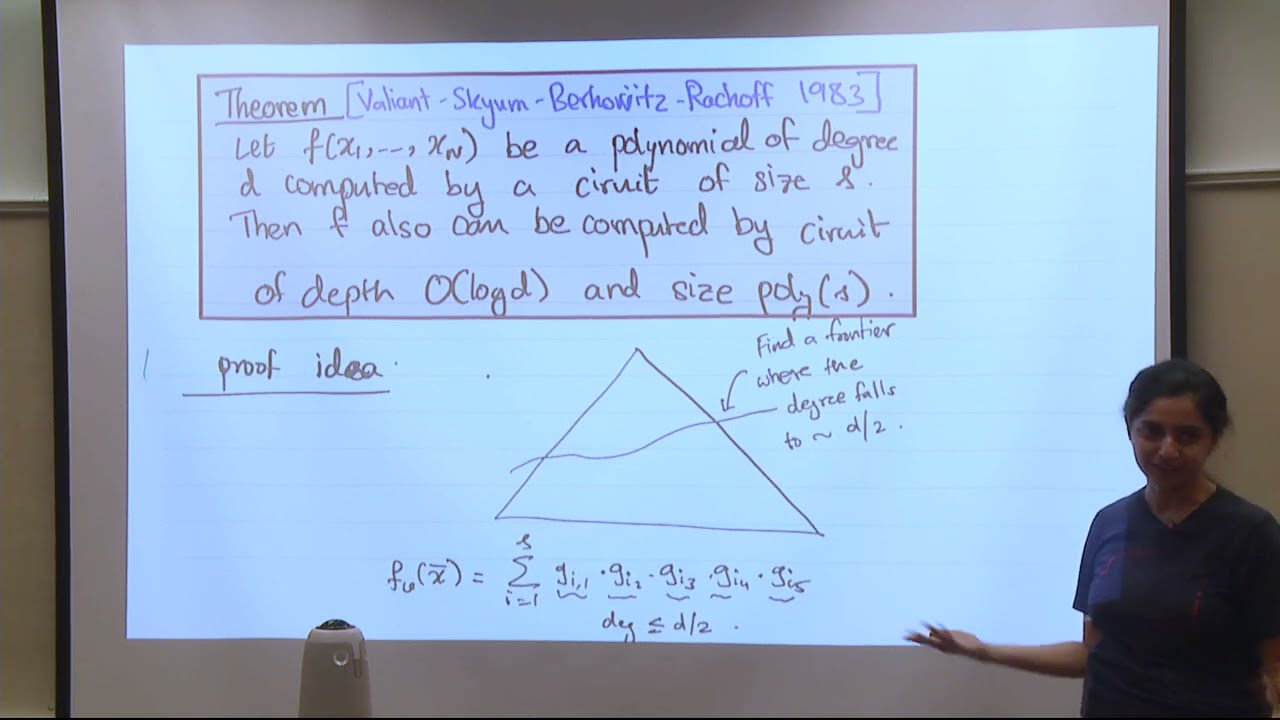 Theorem [Valiant-Skyum-Berkowitz-Rackoff 1983]
Let f(x₁,..,x_N) be a polynomial of degree
d computed by a ciruit of size s.
Then f also can be computed by ciruit
of depth O(log d) and size poly(s).
proof idea.
Find a frontier
where the
degree falls
to ~ d/2.
f_v(x̄) = Σ_{i=1}^{s} g_{i,1} · g_{i2} · g_{i3} · g_{i4} · g_{i5}
deg ≤ d/2 .